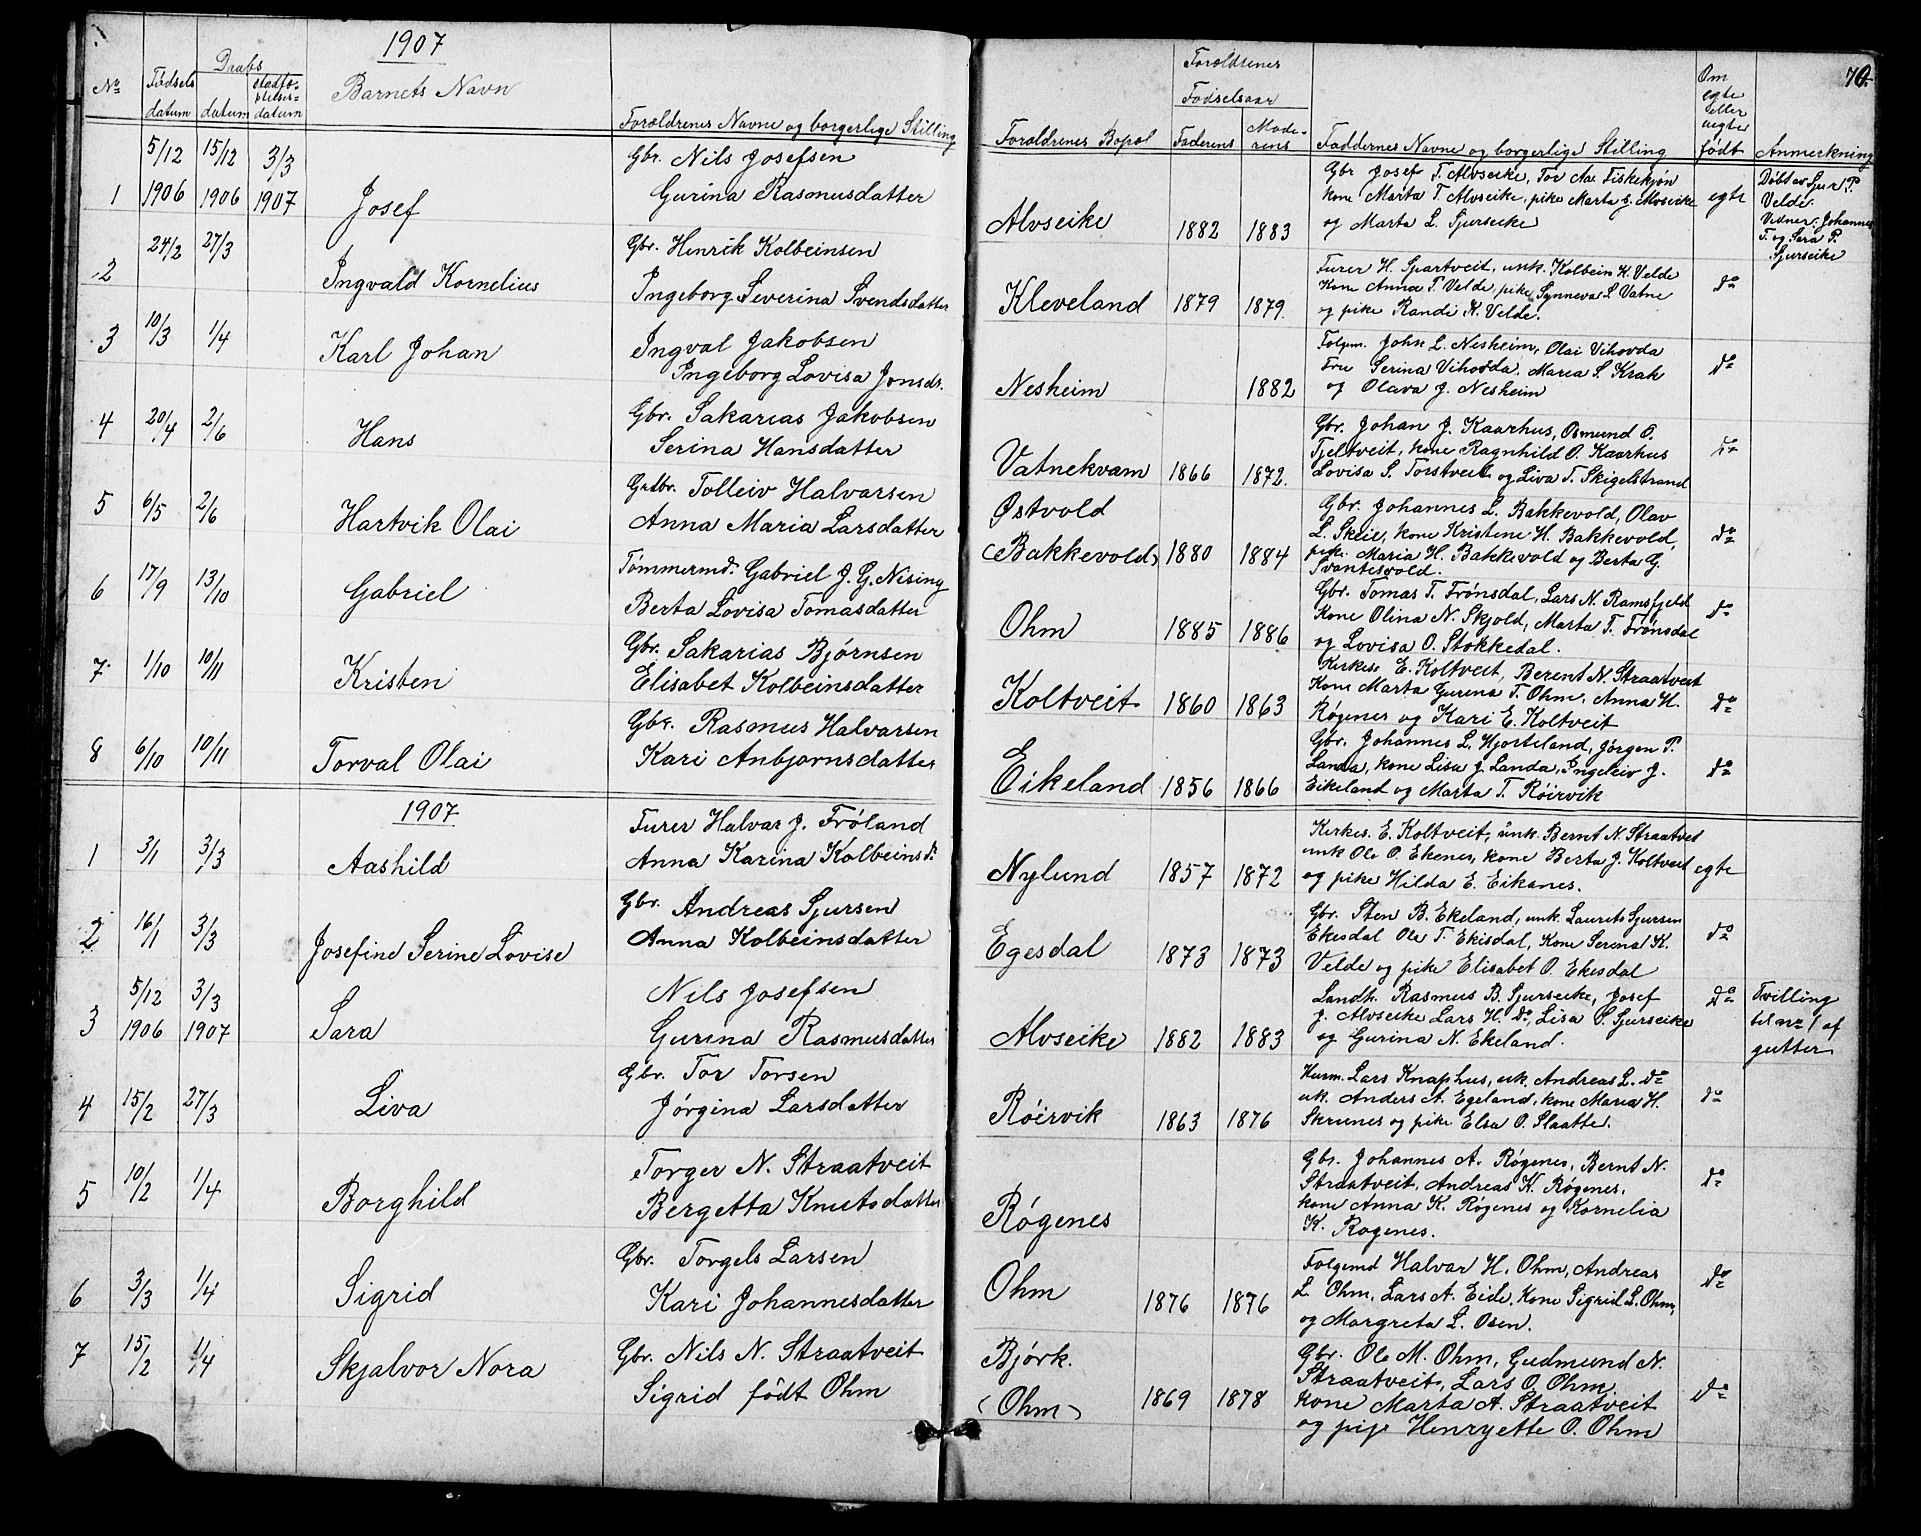 1907
70.
No
Fødsels
datum
Daabs
datum
stadfæ-
stelses-
datum
Barnets Navn
Forældrenes Navne og borgerlige Stilling
Foraldrenes Bopæl
Foraldrenes
Fødselsaar
Faderens
Mode-
rens
Faddernes Navne og borgerlige Stilling
Om
egte
eller
uegte
født
Anmerkning
1
5/12
1906
15/12
1906
3/3
1907
Josef
Gbr. Nils Josefsen
Gurina Rasmusdatter
Alvseike
1882
1883
Gbr Josef T. Alvseike, Tor Aa Fiskekjøn
kone Marta T. Alvseike, pike Marta J. Alvseike
og Marta L. Sjurseike
egte
Døbt av Sjur P.
Velde.
Vidner: Johannes
T. og Sara P.
Sjurseike
2
24/2
27/3
Ingvald Kornelius
Gbr. Henrik Kolbeinsen
Ingeborg Severina Svendsdatter
Kleveland
1879
1879.
Furer H. Spartveit, unk. Kolbein K. Velde
Kone Anna T. Velde, pike Synneva L Vatne
og pike Randi K. Velde.
do
3
10/3
1/4
Karl Johan
Ingval Jakobsen
Ingeborg Lovisa Jonsds.
Nesheim
1882
Folgm. John L. Nesheim, Olai Vihovda
Fru Serina Vihovda. Marea S. Krak
og Olava J. Nesheim
do
4
20/4
2/6
Hans
Gbr. Sakarias Jakobsen
Serina Hansdatter
Vatnekvam
1866
1872.
Gbr. Johan J. Kaarhus, Osmund O.
Fjeltveit, kone Ragnhild O. Kaarhus
Lovisa S. Torstveit og Liva T. Skigelstrand
do
5
6/5
2/6
Hartvik Olai
Grdbr. Tolleiv Halvarsen
Anna Maria Larsdatter
Østvold
(Bakkevold)
1880
1884
Gbr. Johannes L. Bakkevold, Olav
L. Skeie, kone Kristene H. Bakkevold,
pike Maria H. Bakkevold og Berta G.
Svantesvold.
do
6
17/9
13/10
Gabriel
Tømmermd. Gabriel J. G. Nising
Berta Lovisa Tomasdatter
Ohm
1885
1886
Gbr. Tomas T. Frønsdal, Lars N. Ramsfjeld
Kone Olina N. Skjold, Marta T. Frønsdal
og Lovisa O. Stokkedal.
do
7
1/10
10/11
Kristen
Gbr. Sakarias Bjørnsen
Elisabet Kolbeinsdatter
Koltveit
1860
1863
Kirkes. E. Koltveit, Berent N. Straatveit
Kone Marta Gurina T. Ohm, Anna H.
Røgenes og Kari E. Koltveit
do
8
6/10
10/11
Torval Olai
Gbr. Rasmus Halvarsen
Kari Anbjornsdatter
Eikeland
1856
1866
Gbr. Johannes L. Hjorteland, Jørgen P.
Landa, kone Lisa J. Landa, Ingeleiv J.
Eikeland og Marta T. Røirvik
do
1907
1
3/1
3/3
Aashild
Furer Halvar J. Frøland
Anna Karina Kolbeinsd.
Nylund
1857
1872
Kirkes. E. Koltveit, unk. Bernt N. Straatvet
unk Ole O. Ekenes, kone Berta J. Koltveit
og pike Hilda E. Eikanes.
egte
2
16/1
3/3
Josefine Serine Lovise
Gbr. Andreas Sjursen
Anna Kolbeinsdatter
Egesdal
1873
1873
Gbr. Sten B. Ekeland, unk. Laurits Sjursen
Ekesdal Ole T. Ekisdal, Kone Serina K.
Velde og pike Elisabet O. Ekesdal
do
3
5/12
1906
3/3
1907
Sara
Nils Josefsen
Gurina Rasmusdatter
Alvseike
1882
1883
Landh. Rasmus B. Sjurseike, Josef
J. Alvseike Lars H. do, Lisa S. Sjurseike
og Gurina N. Ekeland.
do
Tvilling
til no 1 af
gutter
4
15/2
27/3
Liva
Gbr. Tor Torsen
Jørgina Larsdatter
Røirvik
1863
1876
Husm. Lars Knaphus, uk. Andreas L. do
uk. Anders A. Egeland, kone Maria H.
Skrunes og pike Elsa O. Slaatte.
do
5
10/2
1/4
Borghild
Torger N. Straatveit
Bergetta Knutsdatter
Røgenes
Gbr. Johannes A. Røgenes, Bernt N.
Straatveit, Andreas K. Røgenes,
kone Anna K. Røgenes og Kornelia
K. Rogenes.
do
6
3/3
1/4
Sigrid
Gbr. Torgels Larsen
Kari Johannesdatter
Ohm
1876
1876
Folgemd Halvar H. Ohm, Andreas
L. Ohm, Lars A. Eide, Kone Sigrid L. Ohm,
og Margreta L. Osen.
do
7
15/2
1/4
Skjalvor Nora
Gbr. Nils N. Straatveit
Sigrid født Ohm
Bjørk.
(Ohm)
1869
1878
Gbr. Ole M. Ohm, Gudmund N.
Straatveit, Lars O. Ohm.
Kone Marta A. Straatveit
og pip Henryette O. Ohm
do